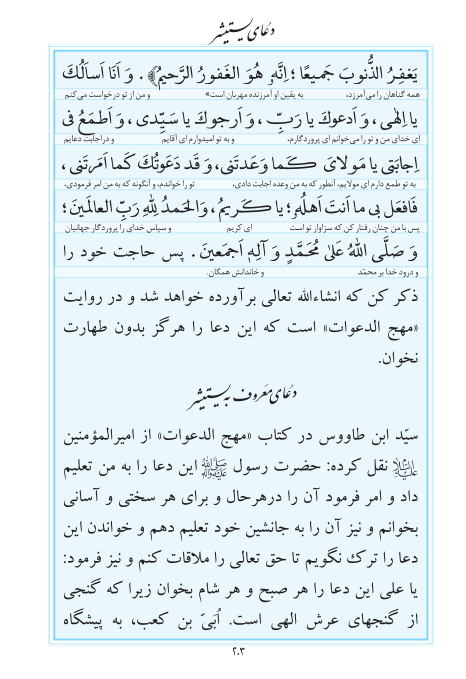 دعای یستشیر
یَغفِرُ الذُّنوبَ جَمیعًا ؛ اِنَّهُ هُوَ الغَفورُ الرَّحیمُ﴾ . وَ اَنَا اَسأَلُكَ
همه گناهان را می‌آمرزد، به یقین او آمرزنده مهربان است» و من از تو درخواست می‌کنم
یا اِلٰهی ، وَ اَدعوكَ یا رَبِّ ، وَ اَرجوكَ یا سَیِّدی ، وَ اَطمَعُ فی
ای خدای من و تو را می‌خوانم ای پروردگارم، و به تو امیدوارم ای آقایم و در اجابت دعایم
اِجابَتی یا مَولایَ کَما وَعَدتَنی ، وَ قَد دَعَوتُكَ کَما اَمَرتَنی ،
به تو طمع دارم ای مولایم، آنطور که به من وعده اجابت دادی، تو را خواندم، و آنگونه که به من امر فرمودی،
فَافعَل بی ما اَنتَ اَهلُهُ ؛ یا کَریمُ ، وَالحَمدُ لِلّٰهِ رَبِّ العالَمینَ ؛
پس با من چنان رفتار کن که سزاوار تو است ای کریم و سپاس خدای را پروردگار جهانیان
وَ صَلَّی اللّٰهُ عَلیٰ مُحَمَّدٍ وَ آلِهِ اَجمَعینَ . پس حاجت خود را
و درود خدا بر محمّد و خاندانش همگان.
ذکر کن که انشاءالله تعالی برآورده خواهد شد و در روایت
«مهج الدعوات» است که این دعا را هرگز بدون طهارت
نخوان.
دعای معروف به یستشیر
سیّد ابن طاووس در کتاب «مهج الدعوات» از امیرالمؤمنین
علیه‌السلام نقل کرده: حضرت رسول ﷺ این دعا را به من تعلیم
داد و امر فرمود آن را درهرحال و برای هر سختی و آسانی
بخوانم و نیز آن را به جانشین خود تعلیم دهم و خواندن این
دعا را ترك نگویم تا حق تعالی را ملاقات کنم و نیز فرمود:
یا علی این دعا را هر صبح و هر شام بخوان زیرا که گنجی
از گنجهای عرش الهی است. اُبَیّ بن کعب، به پیشگاه
۲۰۳